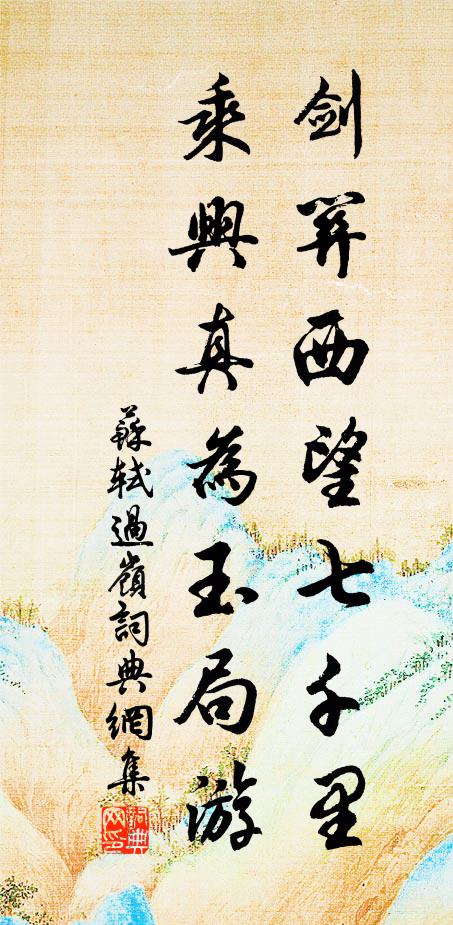 剑关西望七千里
乘興真為玉局游
蘇軾過嶺詞典網集
詞典網印